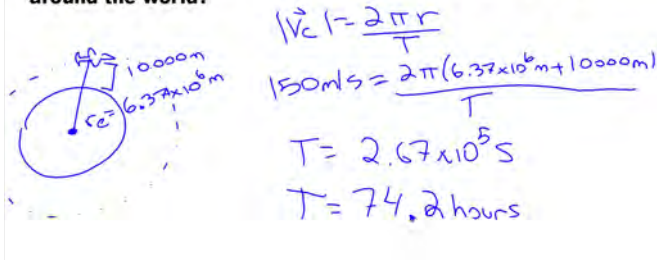 around the world?
|v⃗c| = 2πr / T
10000m
re = 6.37x10⁶m
150m/s = 2π(6.37x10⁶m+10000m) / T
T = 2.67x10⁵s
T = 74.2 hours